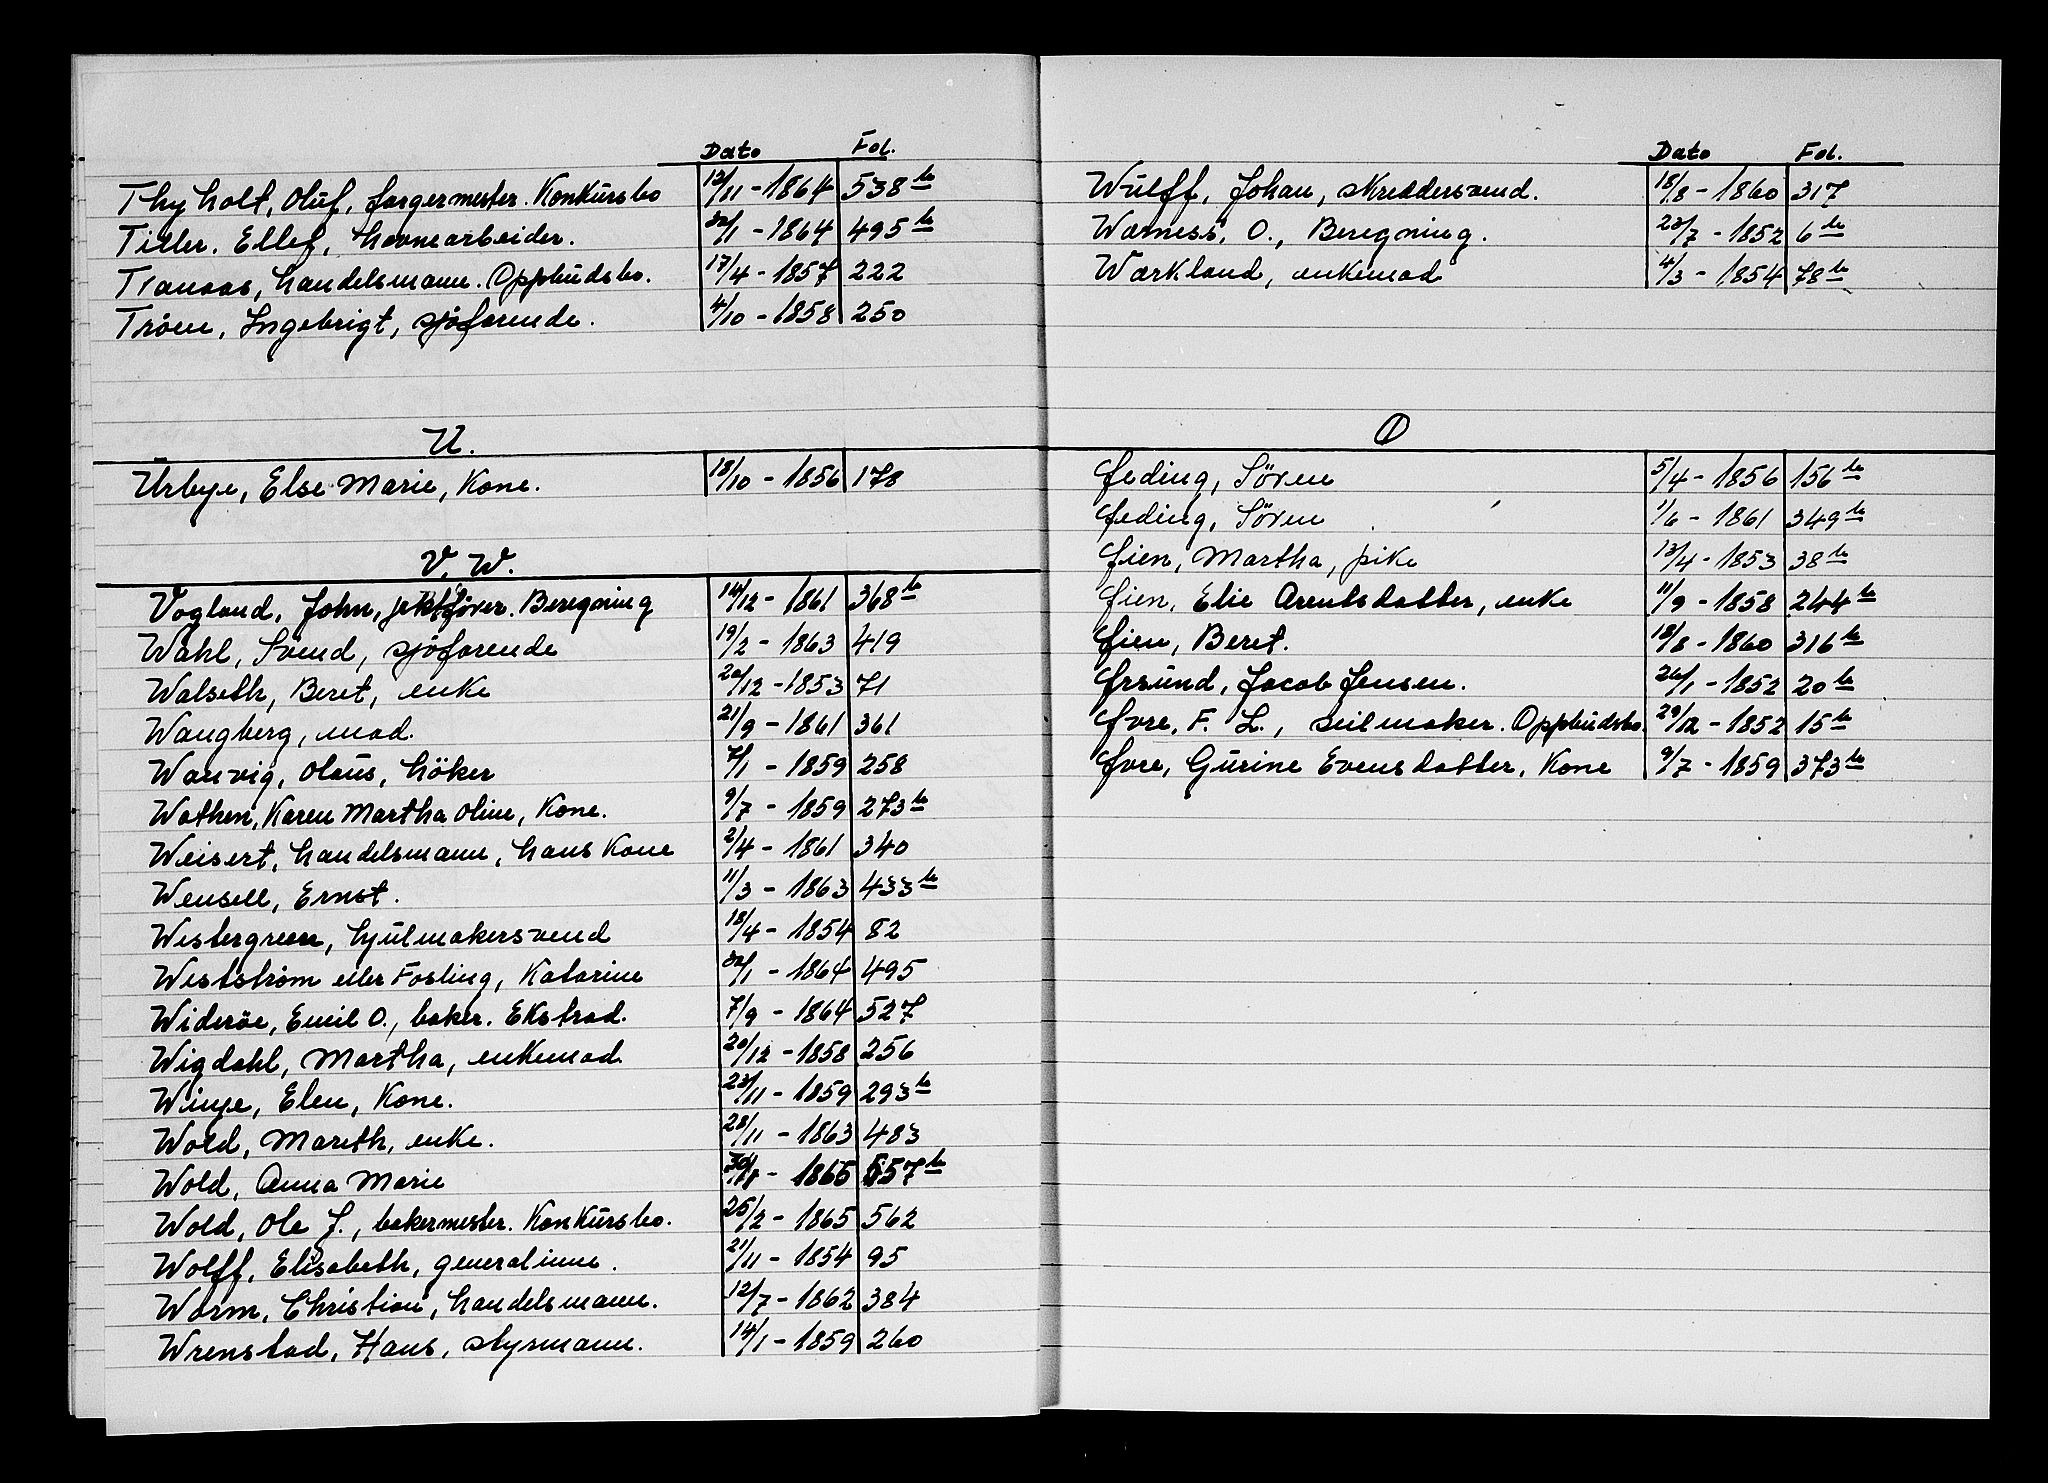 Dato Fol.
Thyholt, Oluf, fargermester. Konkursbo 12/11 - 1864 538 b
Tiller. Ellef, havnearbeider. 30/1 - 1864 495 b
Tranaas, handelsmann. Oppbudsbo. 17/4 - 1857 222
Tröen, Ingebrigt, sjöfarende. 4/10 - 1858 250
U.
Urbye, Else Marie, Kone. 13/10 - 1856 178
V. W.
Vogland, John, jektförer. Beregning 14/12 - 1861 368 b
Wahl, Svend, sjöfarende 19/2 - 1863 419
Walseth, Beret, enke 20/12 - 1853 71
Wangberg, mad. 21/9 - 1861 361
Wanvig, Olaus, höker 7/1 - 1859 258
Wathen, Karen Martha Oline, Kone. 9/7 - 1859 273 b
Weisert, handelsmann, hans Kone 2/4 - 1861 340
Wensell, Ernst. 11/3 - 1863 433 b
Westergreen, hjulmakersvend 18/4 - 1854 82
Westström eller Fosling, Katarine 30/1 - 1864 495
Wideröe, Emil O., baker. Ekstrad. 7/9 - 1864 527
Wigdahl, Martha, enkemad. 20/12 - 1858 256
Winge, Elen, Kone. 23/11 - 1859 293 b
Wold, Mareth, enke. 28/11 - 1863 483
Wold, Anna Marie - 1865 557 b
Wold, Ole J., bakermester. Konkursbo. 25/2 - 1865 562
Wolff, Elisabeth, generalinne. 21/11 - 1854 95
Worm, Christian, handelsmann. 12/7 - 1862 384
Wrenstad, Hans, styrmann. 14/1 - 1859 260
Dato Fol.
Wulff, Johan, skreddersvend. 18/8 - 1860 317
Wærness, O., Beregning. 23/7 - 1852 6 b
Wærkland, enkemad 4/3 - 1854 78 b
Ø
Öeding, Sören 5/4 - 1856 156 b
Öeding, Sören 1/6 - 1861 349 b
Öien, Martha, pike 13/4 - 1853 38 b
Öien, Elie Arentsdatter, enke 11/9 - 1858 244 b
Öien, Beret. 18/8 - 1860 316 b
Örsund, Jacob Jensen. 26/1 - 1852 20 b
Övre, F. L., seilmaker. Oppbudsbo. 29/12 - 1852 15 b
Övre, Gurine Evensdatter, Kone 9/7 - 1859 373 b